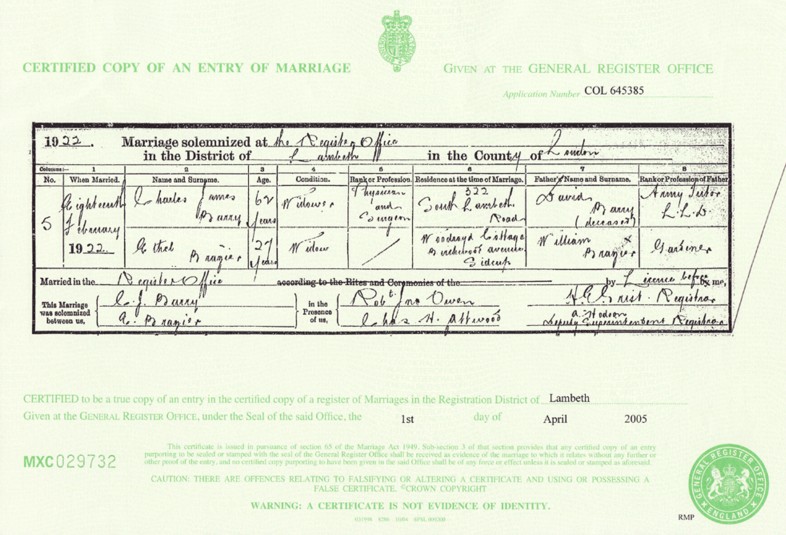 CERTIFIED COPY OF AN ENTRY OF MARRIAGE
GIVEN AT THE GENERAL REGISTER OFFICE
Application Number COL 645385
1922. Marriage solemnized at the Register Office
in the District of Lambeth in the County of London
Columns:— 1 2 3 4 5 6 7 8
No. When Married. Name and Surname. Age. Condition. Rank or Profession. Residence at the time of Marriage. Father's Name and Surname. Rank or Profession of Father
5 Eighteenth February 1922
Charles James Barry 62 years Widower Physician and Surgeon 322 South Lambeth Road David Barry (deceased) Army Tutor L.L.D
Ethel Brazier 27 years Widow Cottage Avenue Sidcup William Brazier Gardener
Married in the Register Office according to the Rites and Ceremonies of the by Licence before by me,
This Marriage was solemnized between us,
C. J. Barry
E. Brazier
in the Presence of us,
Robt Jno Owen
Chas H. Attwood
Registrar
Deputy Superintendent Registrar
CERTIFIED to be a true copy of an entry in the certified copy of a register of Marriages in the Registration District of Lambeth
Given at the GENERAL REGISTER OFFICE, under the Seal of the said Office, the 1st day of April 2005
MXC 029732
This certificate is issued in pursuance of section 65 of the Marriage Act 1949. Sub-section 3 of that section provides that any certified copy of an entry
purporting to be sealed or stamped with the seal of the General Register Office shall be received as evidence of the marriage to which it relates without any further or
other proof of the entry, and no certified copy purporting to have been given in the said Office shall be of any force or effect unless it is sealed or stamped as aforesaid.
CAUTION: THERE ARE OFFENCES RELATING TO FALSIFYING OR ALTERING A CERTIFICATE AND USING OR POSSESSING A
FALSE CERTIFICATE. ©CROWN COPYRIGHT
WARNING: A CERTIFICATE IS NOT EVIDENCE OF IDENTITY.
GENERAL REGISTER OFFICE
ENGLAND
RMP